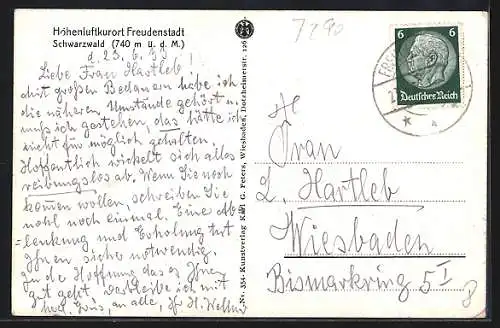 Höhenluftkurort Freudenstadt
Schwarzwald (740 m ü. d. M.)
d. 23. 6. 39
Liebe Frau Hartleb!
Mit großen Bedauern habe ich
die näheren Umstände gehört u.
muß ich gestehen, das hätte ich
nicht für möglich gehalten.
Hoffentlich wickelt sich alles
reibungslos ab. Wenn Sie noch
kommen wollen, schreiben Sie
wohl noch einmal. Eine Ab-
lenkung und Erholung tut
Ihnen sicher notwendig.
In der Hoffnung das es Ihnen
gut geht verbleibe ich mit
herzl. Grüß, an alle, H.
No. 354 Kunstverlag Karl G. Peters, Wiesbaden, Dotzheimerstr. 126
7290
6 6
Deutsches Reich
Frau
L. Hartleb
Wiesbaden
Bismarkring 5 I
8